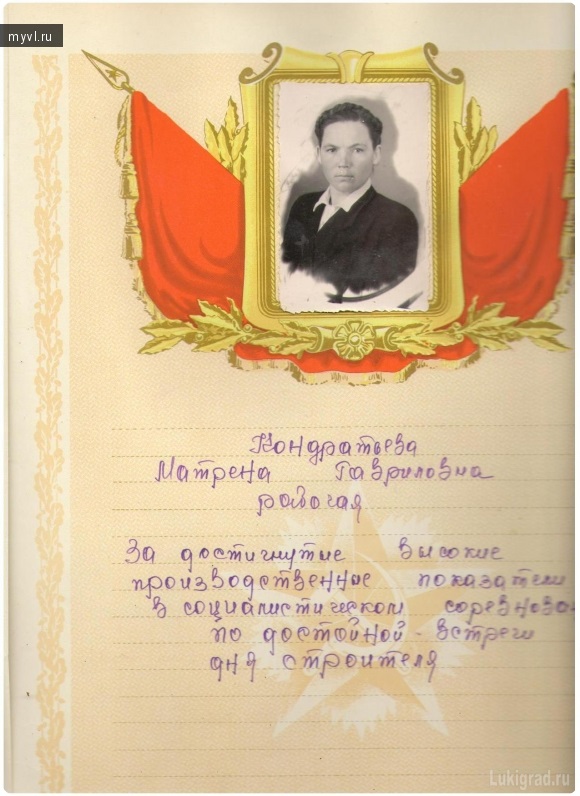 myvl.ru
Кондратьева
Матрена Гавриловна
рабочая
За достигнутые высокие
производственные показатели
в социалистическом соревнова
по достойной встречи
дня строителя
Lukigrad.ru